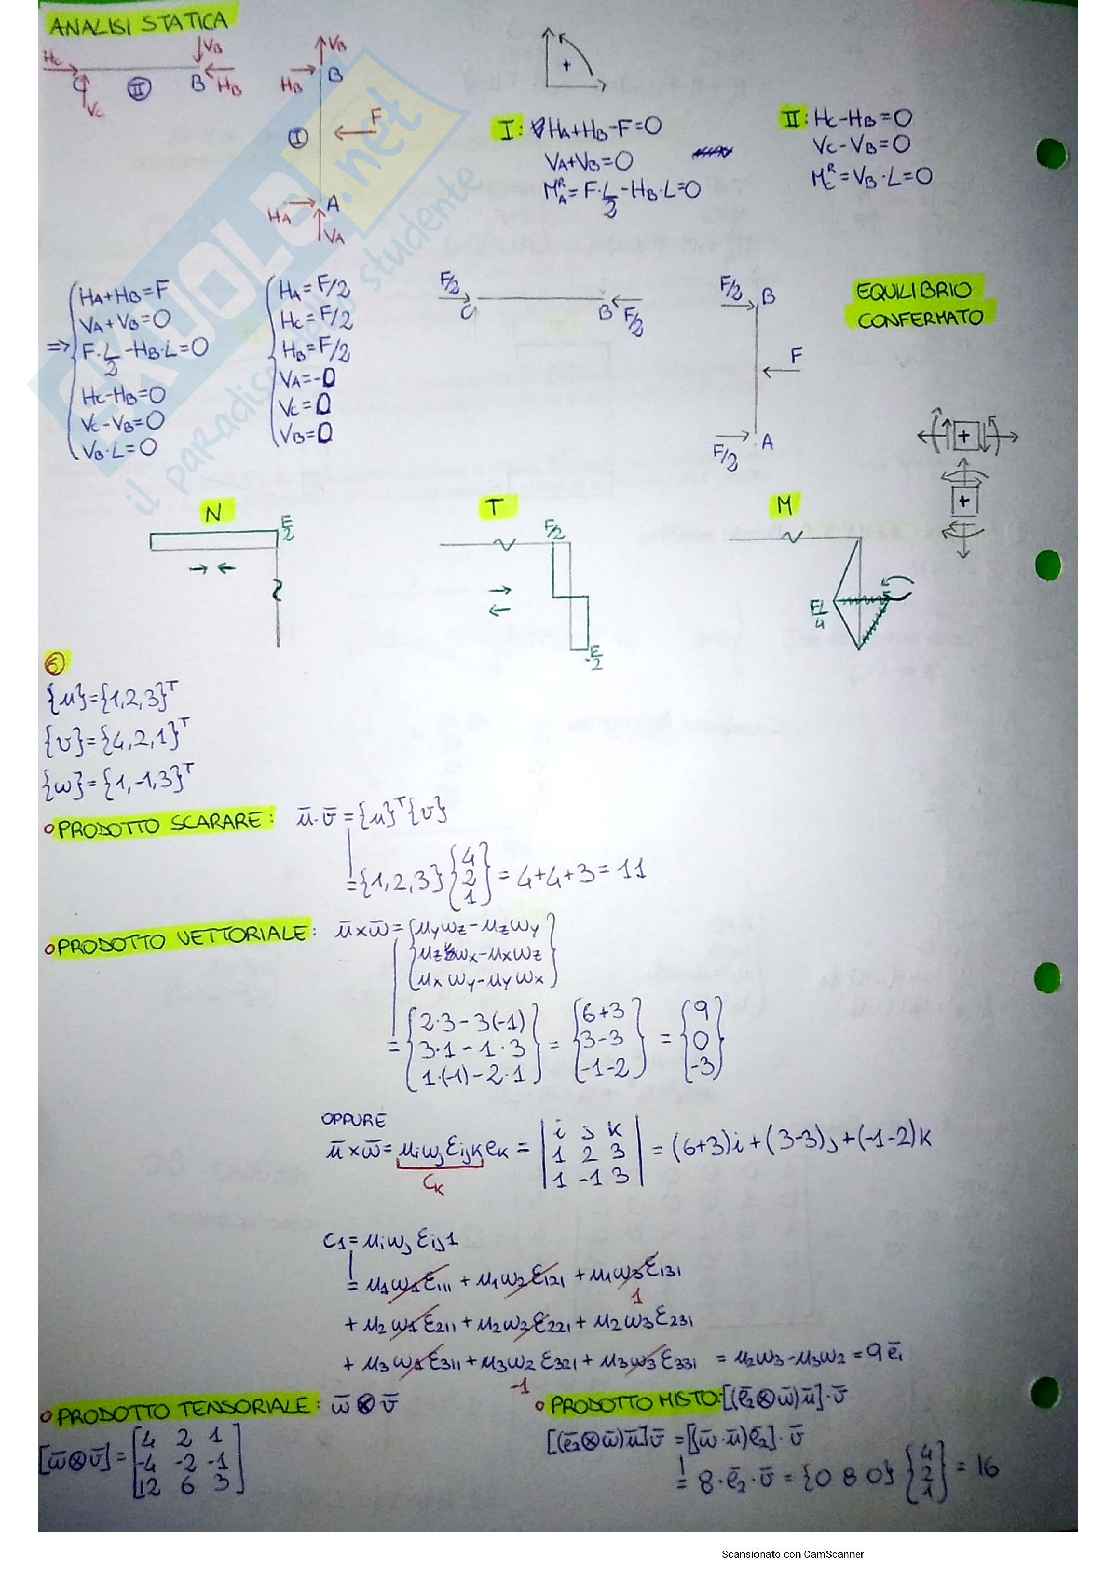 ANALISI STATICA
Hc C Vc II B VB HB
VB HB B I F HA A VA
+
I: HA+HB-F=0
VA+VB=0
M^R_A=F·L/2-HB·L=0
II: Hc-HB=0
Vc-VB=0
M^R_C=VB·L=0
=> HA+HB=F
VA+VB=0
F·L/2-HB·L=0
Hc-HB=0
Vc-VB=0
VB·L=0
HA=F/2
Hc=F/2
HB=F/2
VA=-0
Vc=0
VB=0
F/2 C B F/2
F/2 B F F/2 A
EQUILIBRIO
CONFERMATO
+
+
N F/2
T F/2 -F/2
M FL/4
6
{u}={1,2,3}^T
{v}={4,2,1}^T
{w}={1,-1,3}^T
PRODOTTO SCARARE: ū·v̄={u}^T{v}
={1,2,3}{4 2 1}=4+4+3=11
PRODOTTO VETTORIALE: ū×w̄={uywz-uzwy
uzwx-uxwz
uxwy-uywx}
={2·3-3(-1) 3·1-1·3 1·(-1)-2·1}={6+3 3-3 -1-2}={9 0 -3}
OPPURE
ū×w̄=uiwjεijkek=|i j k 1 2 3 1 -1 3|=(6+3)i+(3-3)j+(-1-2)k
Ck
C1=uiwjεij1
=u1w1ε111+u1w2ε121+u1w3ε131
1
+u2w1ε211+u2w2ε221+u2w3ε231
+u3w1ε311+u3w2ε321+u3w3ε331=u2w3-u3w2=9ē1
-1
PRODOTTO TENSORIALE: w̄⊗v̄
[w̄⊗v̄]=[4 2 1
-4 -2 -1
12 6 3]
PRODOTTO MISTO:[(ē2⊗w̄)ū]·v̄
[(ē2⊗w̄)ū]v̄=[(w̄·ū)ē2]·v̄
=8·ē2·v̄={0 8 0}{4 2 1}=16
SKUOLA.net
il paradiso dello studente
Scansionato con CamScanner